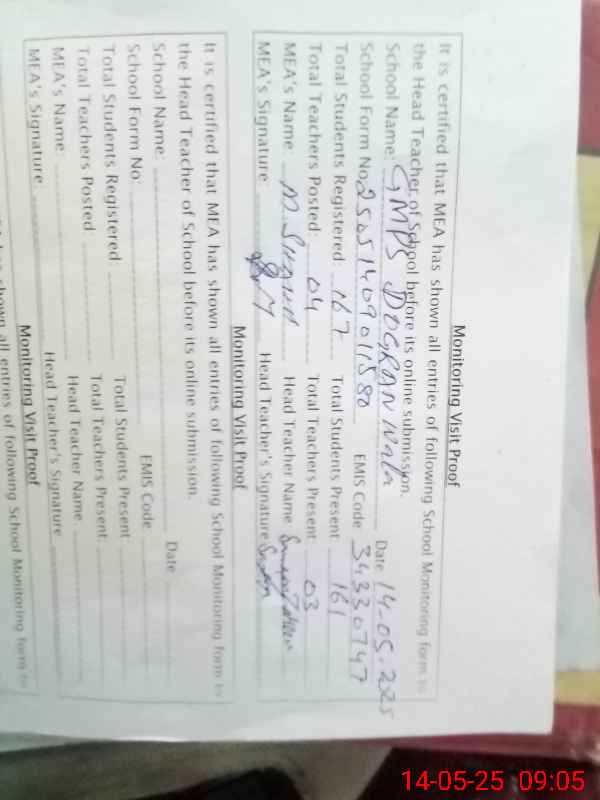 Monitoring Visit Proof
It is certified that MEA has shown all entries of following School Monitoring form to
the Head Teacher of School before its online submission.
School Name: GMPS DOGRAN Wala Date 14.05.225
School Form No: 25051409011580 EMIS Code 34330747
Total Students Registered: 167 Total Students Present 161
Total Teachers Posted: 04 Total Teachers Present 03
MEA's Name: Head Teacher Name
MEA's Signature: Head Teacher's Signature
Monitoring Visit Proof
It is certified that MEA has shown all entries of following School Monitoring form to
the Head Teacher of School before its online submission.
School Name: Date
School Form No: EMIS Code
Total Students Registered: Total Students Present
Total Teachers Posted: Total Teachers Present
MEA's Name: Head Teacher Name
MEA's Signature: Head Teacher's Signature
Monitoring Visit Proof
shown all entries of following School Monitoring form to
14-05-25 09:05